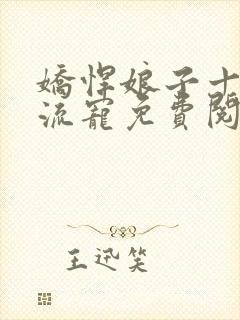 嬌悍娘子十
流寵免費閱
王迅笑